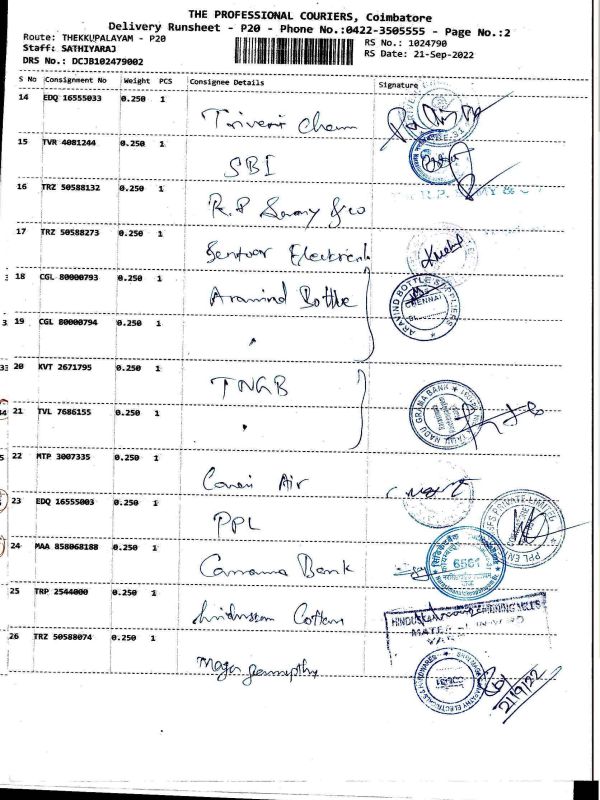 THE PROFESSIONAL COURIERS, Coimbatore
Delivery Runsheet - P20 - Phone No.:0422-3505555 - Page No.:2
Route: THEKKUPALAYAM - P20
Staff: SATHIYARAJ
DRS No.: DCJB102479002
RS No.: 1024790
RS Date: 21-Sep-2022
S No Consignment No Weight PCS Consignee Details Signature
14 EDQ 16555033 0.250 1
Triveni Cham
15 TVR 4081244 0.250 1
SBI
16 TRZ 50588132 0.250 1
R.P Samy & co
17 TRZ 50588273 0.250 1
Electrical
18 CGL 80000793 0.250 1
Aravind Bottle
ARAVIND BOTTLE SUPPLIERS
CHENNAI
19 CGL 80000794 0.250 1
"
20 KVT 2671795 0.250 1
TNGB
21 TVL 7686155 0.250 1
"
TAMIL NADU GRAMA BANK
22 MTP 3007335 0.250 1
Air
23 EDQ 16555003 0.250 1
PPL
24 MAA 858068188 0.250 1
Canara Bank
6561
25 TRP 2544000 0.250 1
Hindustan Cotton
26 TRZ 50588074 0.250 1
21/9/22